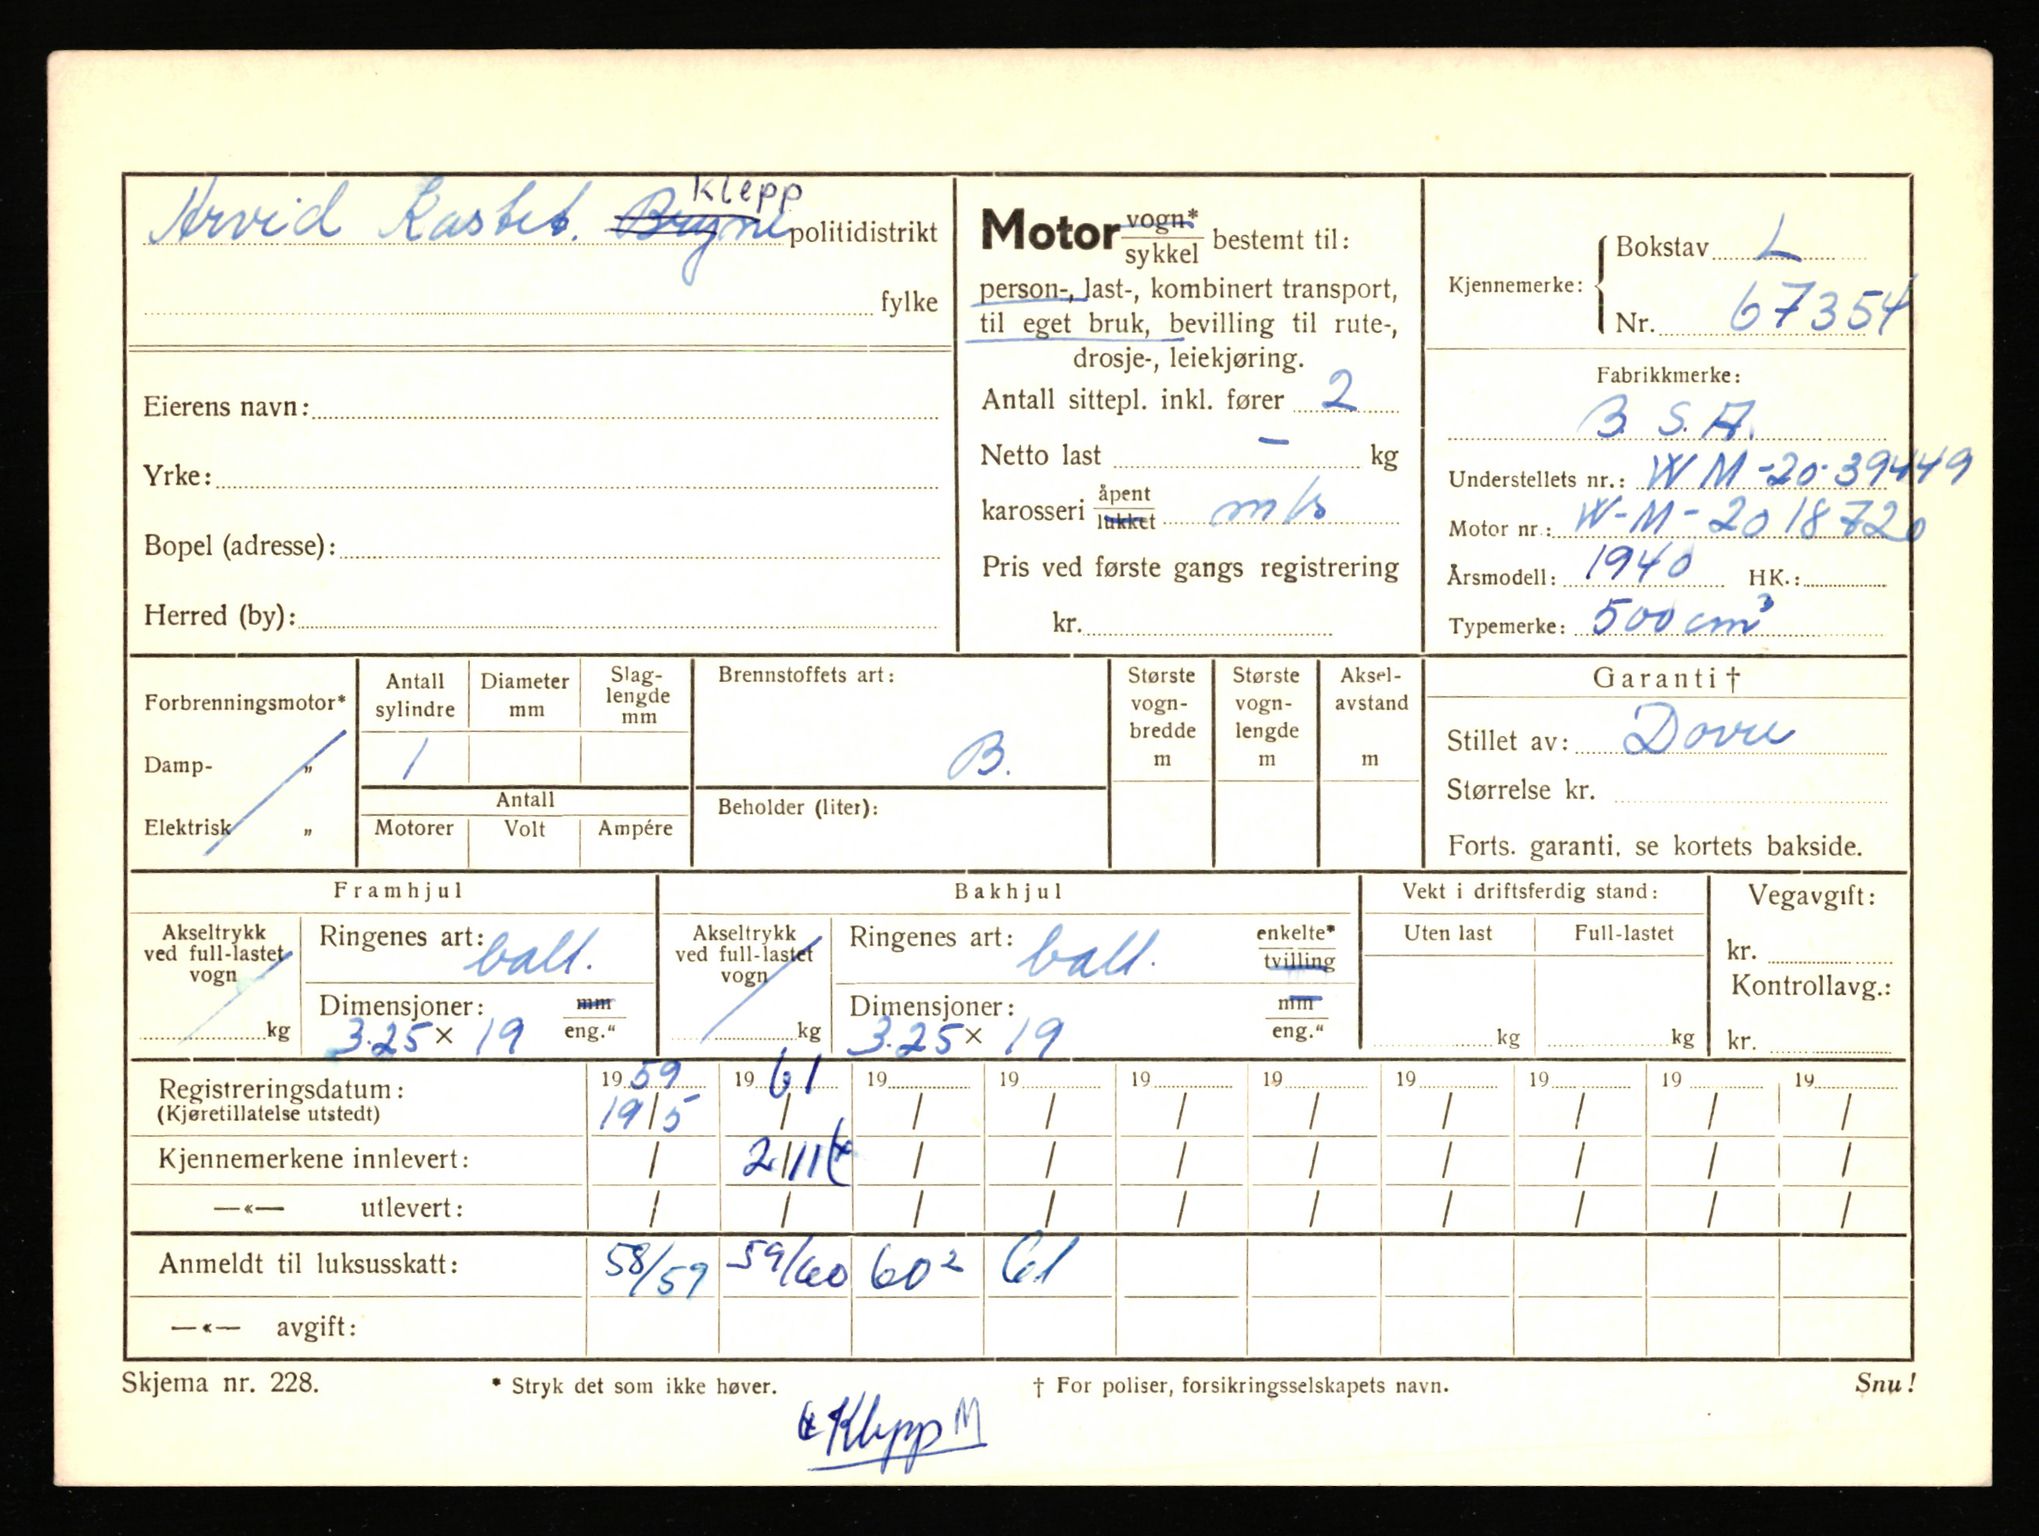 Arvid Kastet. Bryne Klepp politidistrikt
fylke
Eierens navn:
Yrke:
Bopel (adresse):
Herred (by):
Motor vogn* sykkel bestemt til:
person-, last-, kombinert transport,
til eget bruk, bevilling til rute-,
drosje-, leiekjøring.
Antall sittepl. inkl. fører 2
Netto last – kg
karosseri åpent lukket m/s
Pris ved første gangs registrering
kr.
Kjennemerke: { Bokstav L
Nr. 67354
Fabrikkmerke:
B. S. A.
Understellets nr.: WM-20-39449
Motor nr.: W-M-20 18720
Årsmodell: 1940 HK.:
Typemerke: 500 cm³
Forbrenningsmotor*
Damp- „
Elektrisk „
Antall sylindre
Diameter mm
Slag-lengde mm
1
Antall
Motorer Volt Ampére
Brennstoffets art:
B.
Beholder (liter):
Største vogn-bredde m
Største vogn-lengde m
Aksel-avstand m
Garanti †
Stillet av: Dovre
Størrelse kr.
Forts. garanti, se kortets bakside.
Framhjul
Akseltrykk ved full-lastet vogn
kg
Ringenes art: ball.
Dimensjoner: mm
3.25 × 19 eng."
Bakhjul
Akseltrykk ved full-lastet vogn
kg
Ringenes art: ball. enkelte* tvilling
Dimensjoner: mm
3.25 × 19 eng."
Vekt i driftsferdig stand:
Uten last Full-lastet
kg kg
Vegavgift:
kr.
Kontrollavg.:
kr.
Registreringsdatum: 19 59 19 61 19 19 19 19 19 19 19 19
(Kjøretillatelse utstedt) 19/5 / / / / / / / / /
Kjennemerkene innlevert: / 2/11 (* / / / / / / / /
—«— utlevert: / / / / / / / / / /
Anmeldt til luksusskatt: 58/59 59/60 60² 61
—«— avgift:
Skjema nr. 228. * Stryk det som ikke høver. † For poliser, forsikringsselskapets navn. Snu!
Klepp M